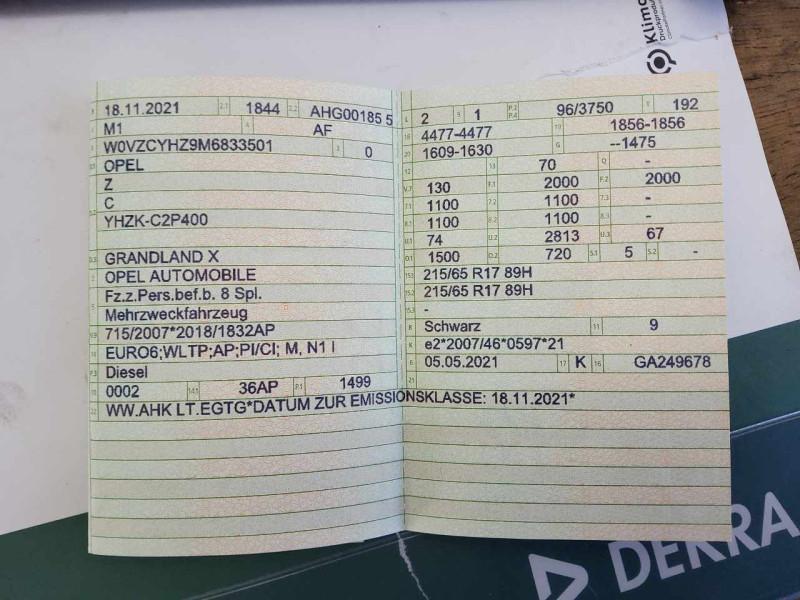 18.11.2021 2.1 1844 2.2 AHG00185 5
M1 4 AF
W0VZCYHZ9M6833501 3 0
OPEL
Z
C
YHZK-C2P400
GRANDLAND X
OPEL AUTOMOBILE
Fz.z.Pers.bef.b. 8 Spl.
Mehrzweckfahrzeug
715/2007*2018/1832AP
EURO6;WLTP;AP;PI/CI; M, N1 I
Diesel
0002 14.1 36AP P.1 1499
WW.AHK LT.EGTG*DATUM ZUR EMISSIONSKLASSE: 18.11.2021*
L 2 9 1 P.2 P.4 96/3750 T 192
18 4477-4477 19 1856-1856
20 1609-1630 G --1475
12 13 70 Q -
V.7 130 F.1 2000 F.2 2000
7.1 1100 7.2 1100 7.3 -
8.1 1100 8.2 1100 8.3 -
U.1 74 U.2 2813 U.3 67
O.1 1500 O.2 720 S.1 5 S.2 -
15.1 215/65 R17 89H
15.2 215/65 R17 89H
15.3 -
R Schwarz 11 9
K e2*2007/46*0597*21
6 05.05.2021 17 K 16 GA249678
21
Druckprodukt
DEKRA